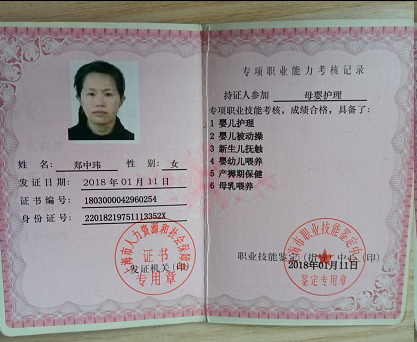 姓 名： 郑中玮 性 别： 女
发 证 日 期： 2018 年 01 月 11 日
证 书 编 号 1803000042960254
身 份 证 号： 22018219751113352X
上海市人力资源和社会保障局
证 书
专用章
发证机关(印)
专项职业能力考核记录
持证人参加 母婴护理
专项职业技能考核，成绩合格，具备了：
1 婴儿护理
2 婴儿被动操
3 新生儿抚触
4 婴幼儿喂养
5 产褥期保健
6 母乳喂养
上海市职业技能鉴定中心
职业技能鉴定(指导)中心(印)
2018年01月11日
鉴定专用章